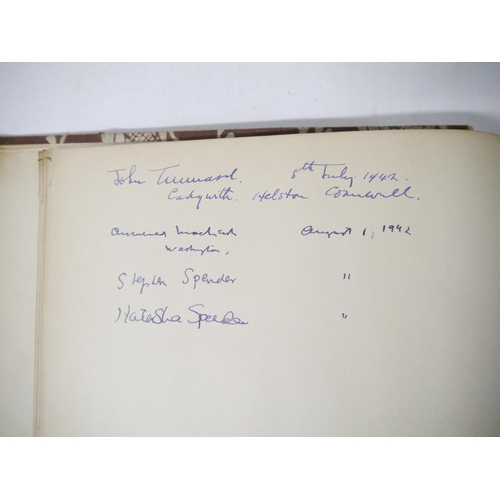 John Tunnard. 8th July 1942.
Cadgwith. Helston Cornwall.
August 1, 1942
Washington,
Stephen Spender "
Natasha Spender "